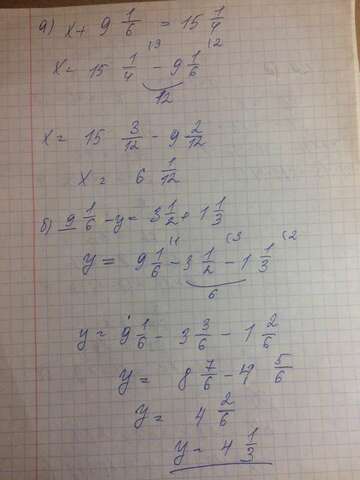 а) x + 9 1/6 = 15 1/4
x = 15 1/4 (3 - 9 1/6 (2
12
x = 15 3/12 - 9 2/12
x = 6 1/12
б) 9 1/6 - y = 3 1/2 + 1 1/3
y = 9 1/6 (1 - 3 1/2 (3 - 1 1/3 (2
6
y = 9 1/6 - 3 3/6 - 1 2/6
y = 8 7/6 - 4 5/6
y = 4 2/6
y = 4 1/3